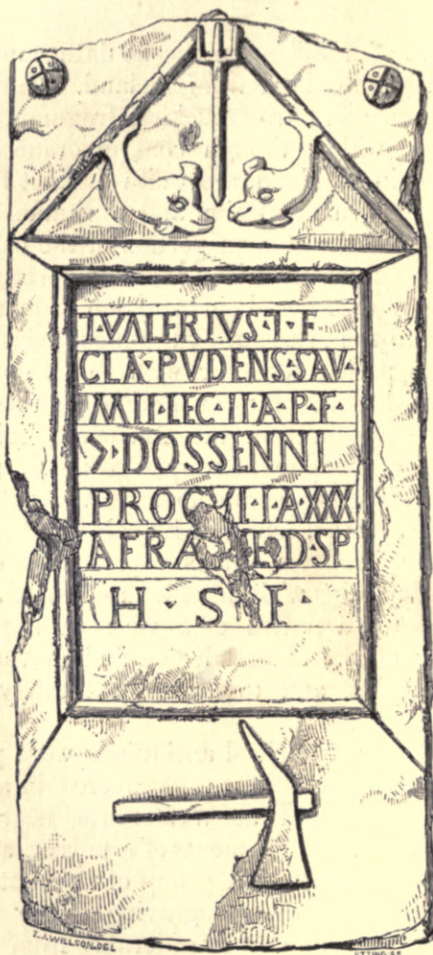 T·VALERIVS·T·F
CLA·PVDENS·SAV·
MIL·LEG·II·A·P·F·
>·DOSSENNI
PROCVLI·A·XXX
AERA D·SP
H·S·E·
T.J.WILLSON.DEL
UTTING SC